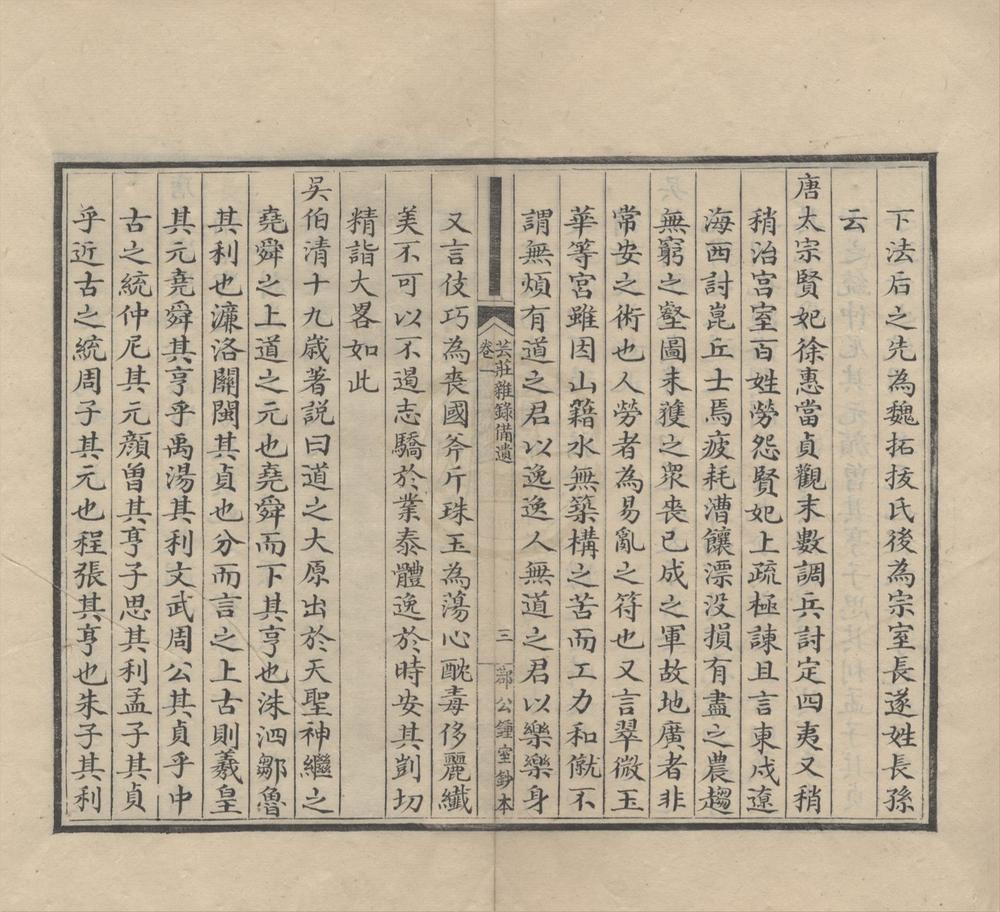 下法后之先為魏拓拔氏後為宗室長遂姓長孫
云
唐太宗賢妃徐惠當貞觀末數調兵討定四夷又稍
稍治宮室百姓勞怨賢妃上疏極諫且言東戍遼
海西討崑丘士馬疲耗漕饟漂没損有盡之農趨
無窮之壑圖未獲之眾喪已成之軍故地廣者非
常安之術也人勞者為易亂之符也又言翠微玉
華等宮雖因山籍水無築構之苦而工力和僦不
謂無煩有道之君以逸逸人無道之君以樂樂身
芸莊雜錄備遺
卷一
三
鄒公鍾室鈔本
又言伎巧為喪國斧斤珠玉為蕩心酖毒侈麗纖
美不可以不遏志驕於業泰體逸於時安其剴切
精詣大畧如此
吳伯清十九歲著説曰道之大原出於天聖神繼之
堯舜之上道之元也堯舜而下其亨也洙泗鄒魯
其利也濂洛關閩其貞也分而言之上古則羲皇
其元堯舜其亨乎禹湯其利文武周公其貞乎中
古之統仲尼其元顏曽其亨子思其利孟子其貞
乎近古之統周子其元也程張其亨也朱子其利